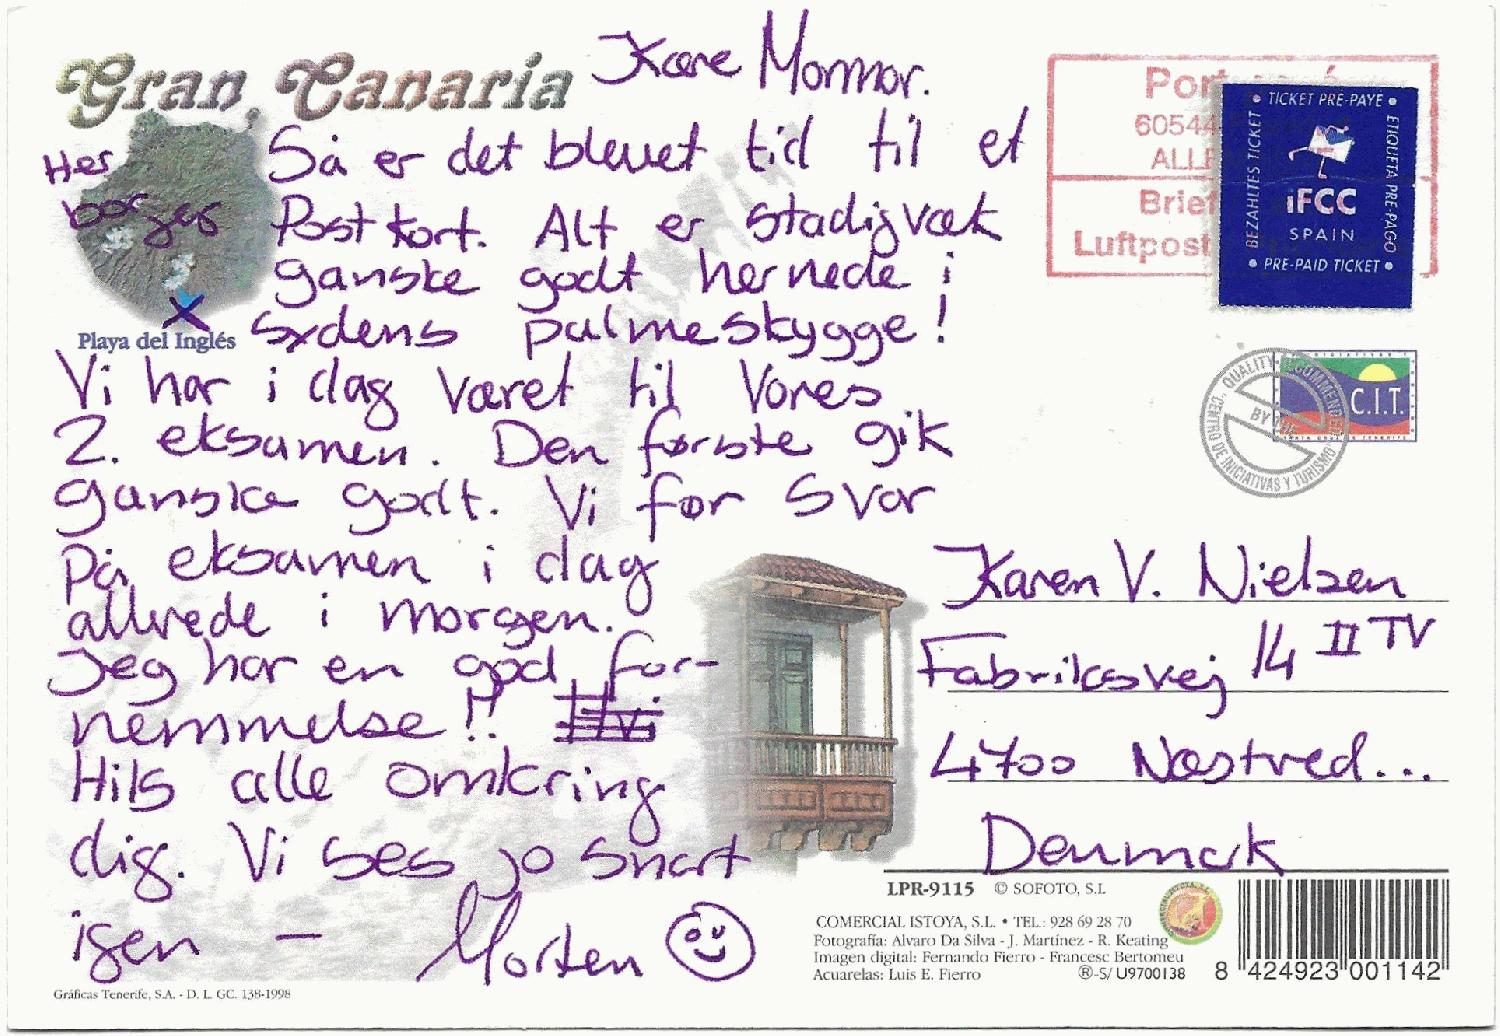 Gran Canaria
Kære Mormor.
Så er det blevet tid til et
Postkort. Alt er stadigvæk
ganske godt hernede i
sydens palmeskygge!
Her
borger
Playa del Inglés
Vi har i dag været til Vores
2. eksamen. Den første gik
ganske godt. Vi før svar
På eksamen i dag
allerede i morgen.
Jeg har en god for-
nemmelse!!
Hils alle omkring
dig. Vi ses jo snart
igen - Morten
Gráficas Tenerife, S.A. - D. L. GC. 138-1998
60544
Brief
Luftpost
• TICKET PRE-PAYÉ •
BEZAHLTES TICKET
ETIQUETA PRE-PAGO
iFCC
SPAIN
• PRE-PAID TICKET •
QUALITY RECOMMENDED
BY THE
"CENTRO DE INICIATIVAS Y TURISMO
C.I.T.
Karen V. Nielsen
Fabriksvej 14 II TV
4700 Næstved...
Denmark
LPR-9115 © SOFOTO, S.L
COMERCIAL ISTOYA, S.L. • TEL: 928 69 28 70
Fotografía: Alvaro Da Silva - J. Martínez - R. Keating
Imagen digital: Fernando Fierro - Francesc Bertomeu
Acuarelas: Luis E. Fierro
®-S/ U9700138
8 424923 001142